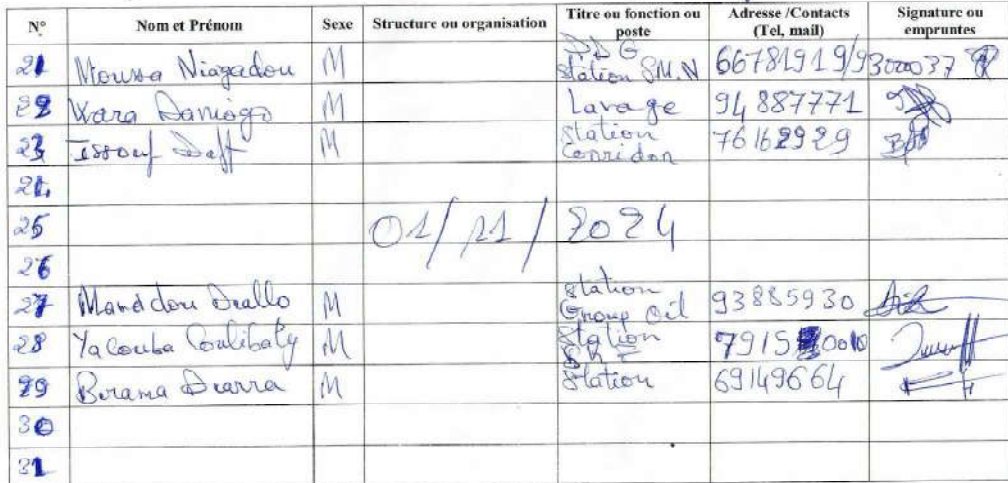 N° Nom et Prénom Sexe Structure ou organisation Titre ou fonction ou poste Adresse /Contacts (Tel, mail) Signature ou empruntes
21 Moussa Niagadou M PDG station SM.N 66781919/93000037
22 Wara Daniogo M Lavage 94 887771
23 Issouf M station Corridon 76162929
24
25 01/11/2024
26
27 Mamadou Diallo M station Group Oil 93885930
28 Yacouba Coulibaly M station 7915 0010
29 Birama Diarra M station 69149664
30
31